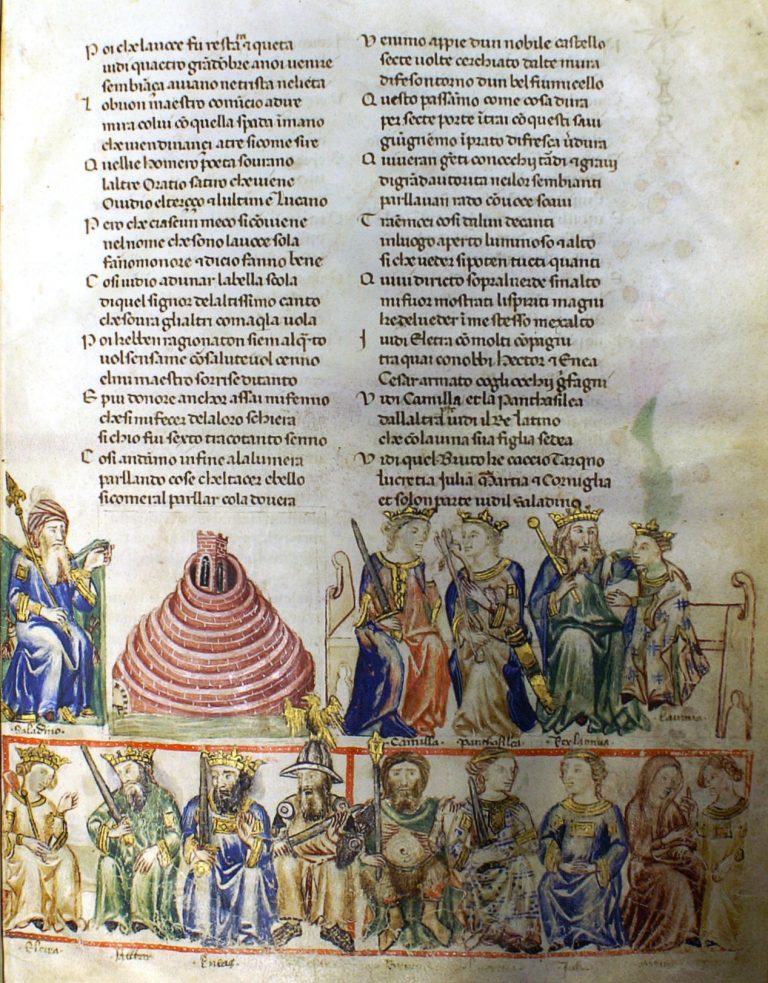 Poi chelauoce fu resta & queta
uidi quactro grādōbre anoi uenire
sembiāça auiano ne trista ne lieta
Lobuon maestro comīcio adire
mira colui cō quella spada īmano
che uien dinançi atre sicome sire
Quelli e homero poeta sourano
laltre Oratio satiro cheuiene
Ouidio elterço & lultimē Lucano
Pero che ciascun meco sicōuiene
nelnome che sono lauoce sola
fānomonore & dicio fanno bene
Cosi uidio adunar labella scola
diquel signor delaltissimo canto
che soura ghaltri comaqla uola
Poi hebben ragionaton siem alqto
uolsensame cō saluteuol cenno
elmi maestro sorrise ditanto
E piu donore anchor assai mifenno
chesi mifecer delaloro schiera
sichio fui sexto tra cotanto senno
Cosi andāmo infine alalumera
parllando cose cheltacer e bello
sicomeral parllar cola douera
Venimo appie dun nobile castello
secte uolte cerchiato dalte mura
difeso ntorno dun bel fiumicello
Questo passāmo come cosa dura
per secte porte ītrai cō questi saui
giūgnēmo īprato difresca ūdura
Quiueran gēti conocchij tādi & graui
digrād autorita neilor sembianti
parllauan rado cō uoce soaui
Traēmoci cosi dalun decanti
inluogo aperto luminoso & alto
si che ueder sipoten tucti quanti
Quiui diricto sopraluerde smalto
mi fuor mostrati lispiriti magni
che deluedere īme stesso mexalto
I uidi Eletra cō molti cōpagni
tra quai conobbi Hector & Enea
Cesar armato cogli occhij gfagni
Vidi Camilla et la Panthasilea
dallaltra uidi il Re latino
che colauina sua figlia sedea
Vidi quel Bruto he caccio Tarqno
lucretia Iulia Martia & Corniglia
et solon parte uidil saladino
Saladino
Camilla
Panthasilea
Rexlatinus
Lauinia
Eletra
Hector
Eneas